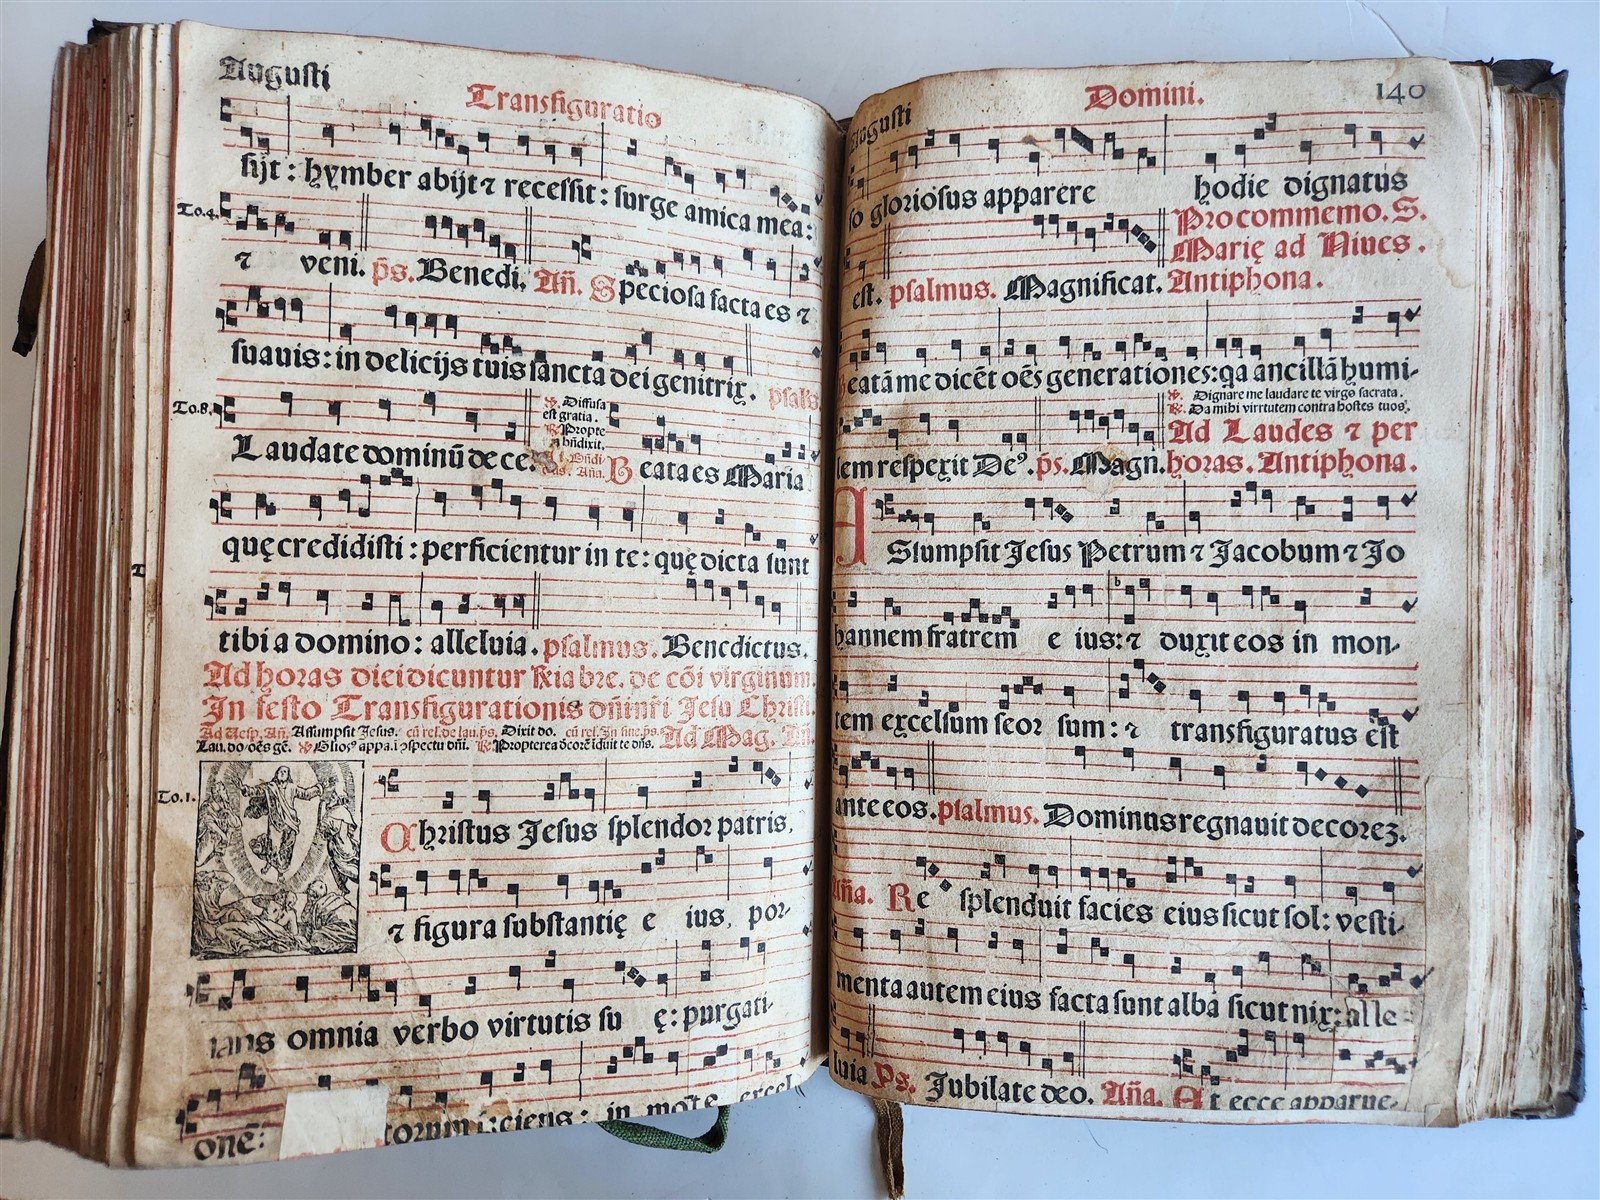 Augusti
Transfiguratio
sijt : hymber abijt ⁊ recessit : surge amica mea :
To.4.
⁊ veni. p̄s. Benedi. Añ. Speciosa facta es ⁊
suauis : in delicijs tuis sancta dei genitrix. psal's
To.8.
Laudate dominū de ce.
℣. Diffusa
est gratia.
℟. Propte
bñdixit.
Añ. Beata es Maria
quę credidisti : perficientur in te : quę dicta sunt
tibi a domino : alleluia. psalmus. Benedictus.
Ad horas diei dicuntur ℟ia bre. de cōi virginum.
In festo Transfigurationis dñi nři Jesu Christi.
Ad Uesp. Añ. Assumpsit Jesus. cū rel. de lau. p̄s. Dixit do. cū rel. In fine. p̄s.
Lau. do. oēs gē. ℣. Glios⁹ appa. i ɔspectu dñi. ℟. Propterea decorē iduit te dñs. Ad Mag. Añ.
To.1.
Christus Jesus splendor patris,
⁊ figura substantię e ius, por-
tans omnia verbo virtutis su ę : purgati-
onē : torum faciens : in mōte excel
Augusti
Domini.
140
so gloriosus apparere hodie dignatus
est. psalmus. Magnificat.
Pro commemo. S.
Marię ad Niues.
Antiphona.
Beatā me dicēt oēs generationes : qa ancillā humi-
lem respexit De⁹. p̄s. Magn.
℣. Dignare me laudare te virgo sacrata.
℟. Da mihi virrtutem contra hostes tuos.
Ad Laudes ⁊ per
horas. Antiphona.
ASsumpsit Jesus Petrum ⁊ Jacobum ⁊ Jo
hannem fratrem e ius : ⁊ duxit eos in mon-
tem excelsum seor sum : ⁊ transfiguratus est
ante eos. psalmus. Dominus regnauit decorez.
Aña. Re splenduit facies eius sicut sol : vesti-
menta autem eius facta sunt alba sicut nix : alle =
luia Ps. Jubilate deo. Aña. Et ecce apparue-